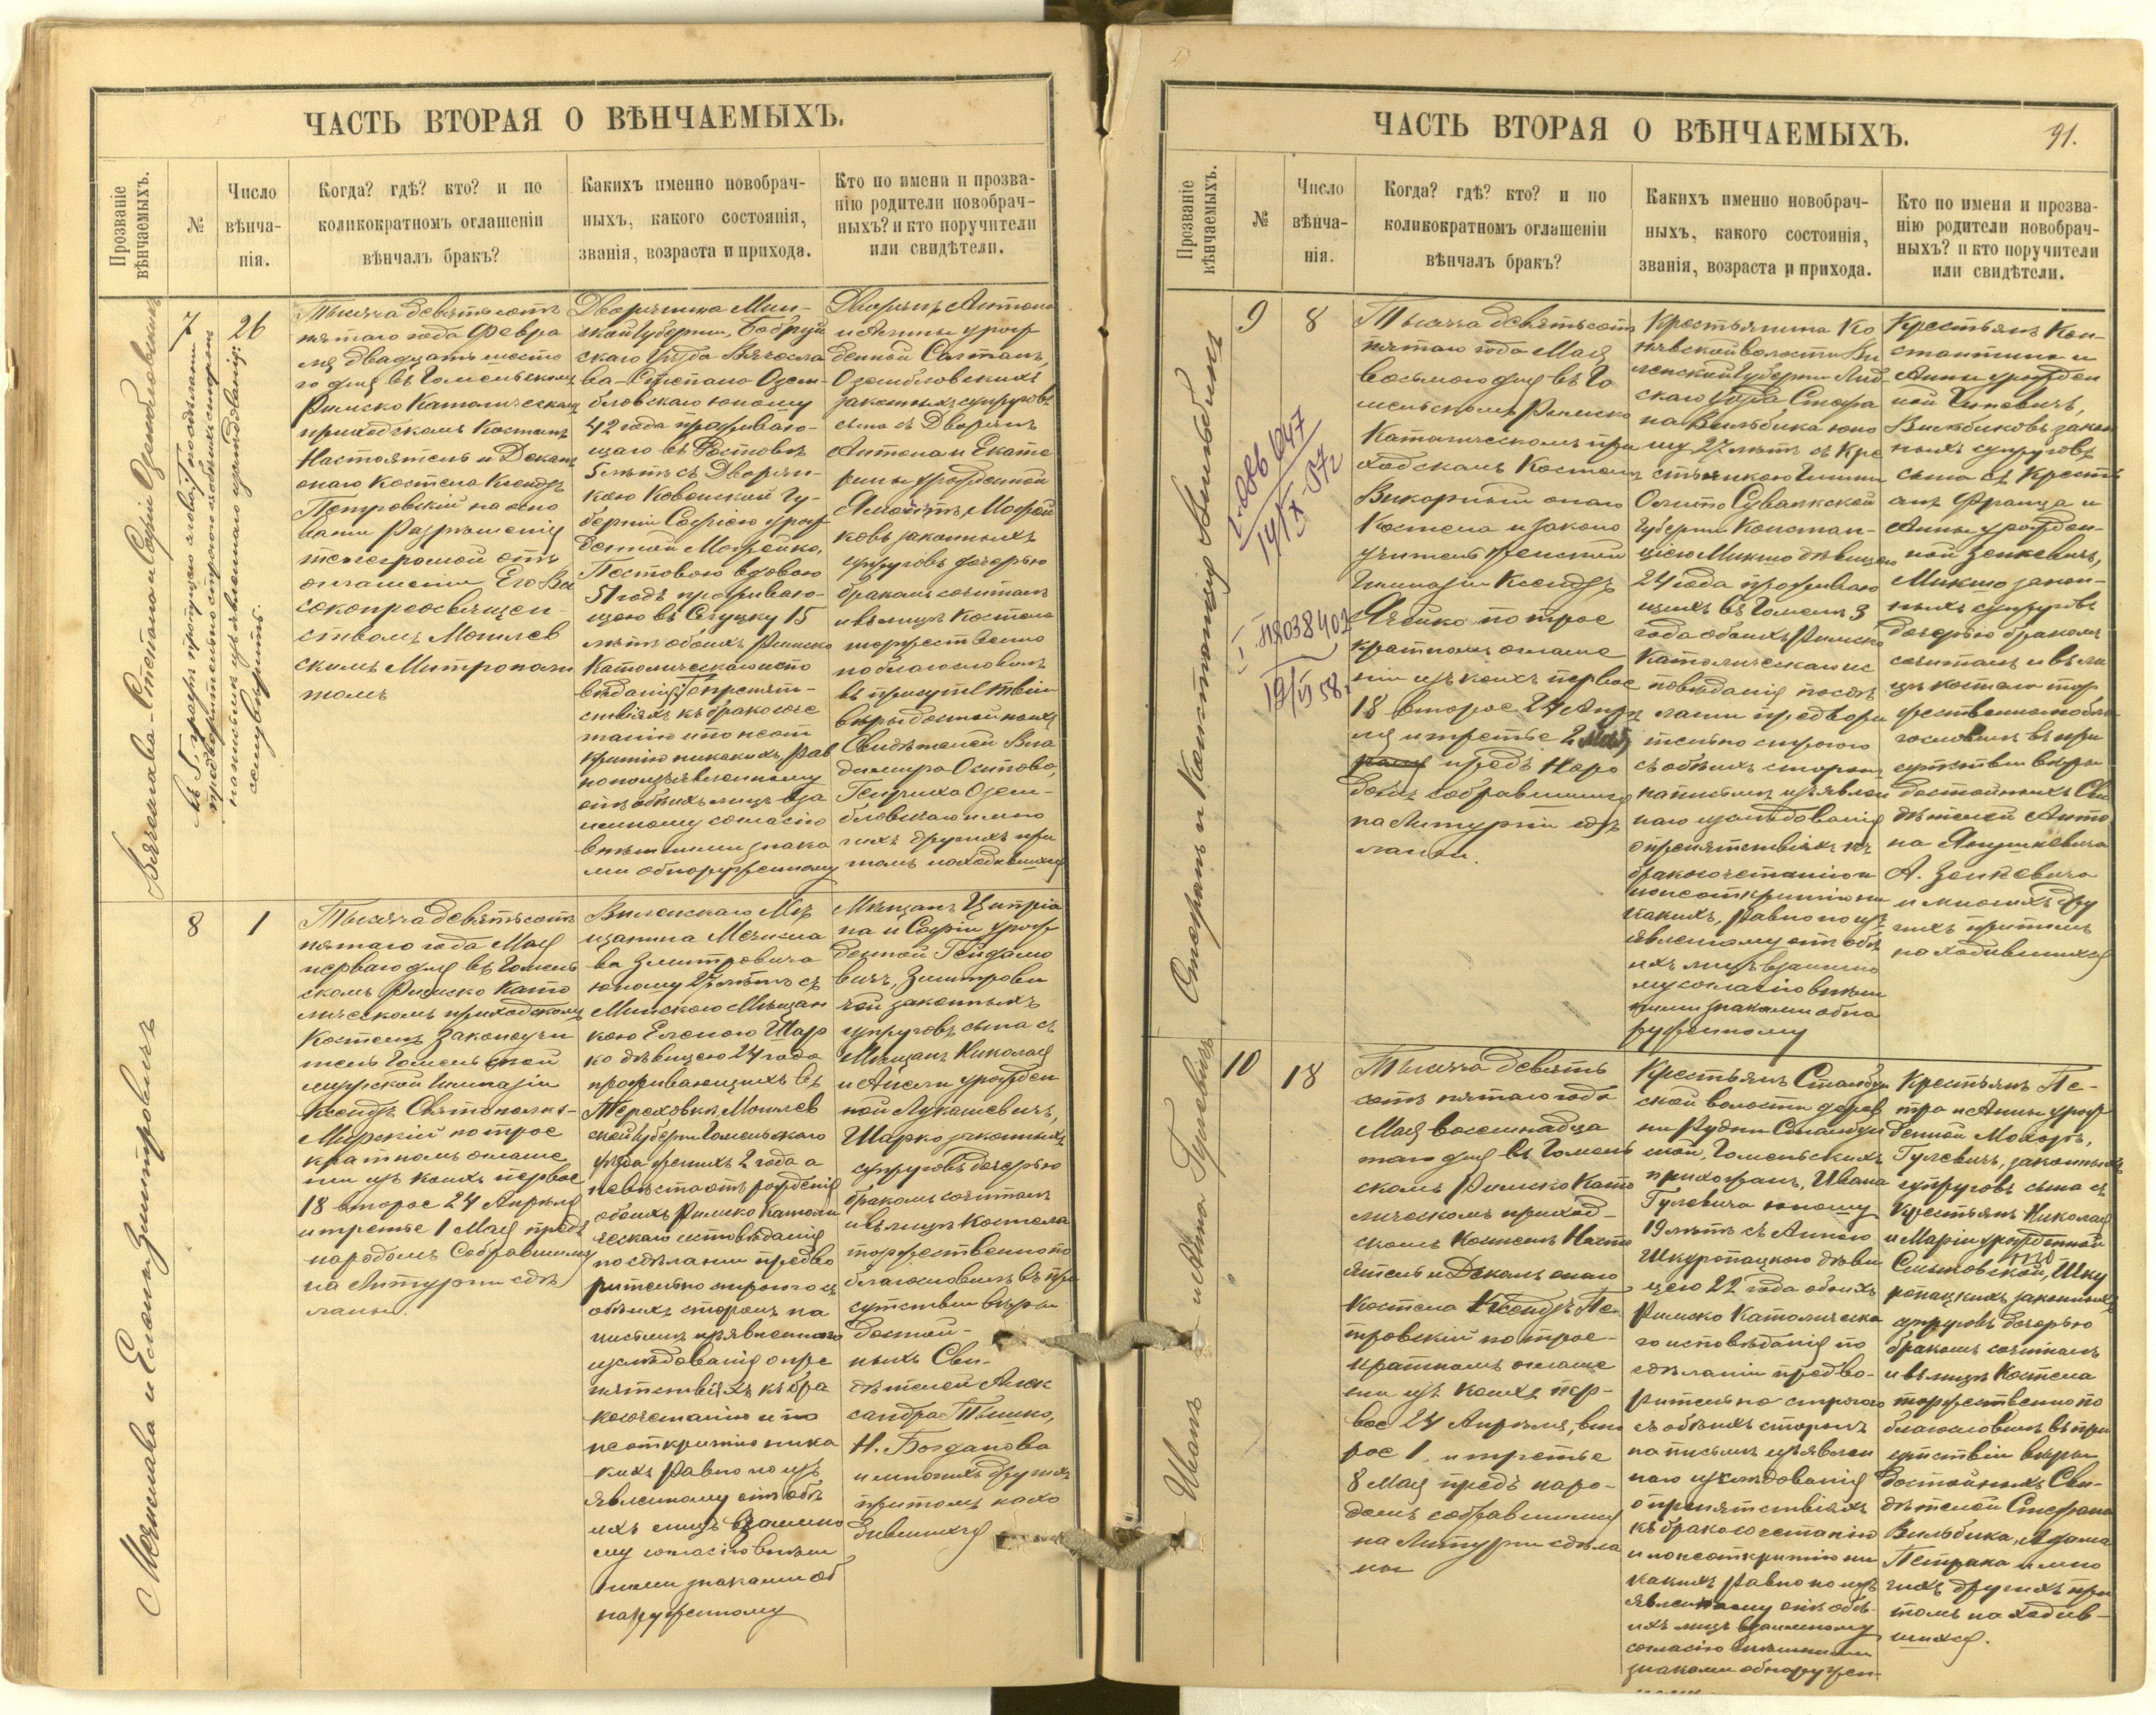 ЧАСТЬ ВТОРАЯ О ВѢНЧАЕМЫХЪ.
Прозваніе
вѣнчаемыхъ.
№
Число
вѣнча-
нія.
Когда? гдѣ? кто? и по
коликократномъ оглашеніи
вѣнчалъ бракъ?
Какихъ именно новобрач-
ныхъ, какого состоянія,
званія, возраста и прихода.
Кто по имени и прозва-
нію родители новобрач-
ныхъ? и кто поручители
или свидѣтели.
7
26
Тысяча девятьсотъ
пятаго года Февра
ля двадцать шесто
го дня въ Гомельскомъ
Римско Католическомъ
приходскомъ Костелѣ
Настоятель и Деканъ
онаго Костела Ксендзъ
Петровскій на осно
ваніи Разрѣшенія
телеграммой отъ
оглашеніи Его Вы
сокопреосвящен-
ствомъ Могилев
скимъ Митрополи
томъ
Дворянина Мин-
ской Губерніи, Бобруй
скаго Уѣзда Вячесла
ва-Стефана Озем-
бловскаго юношу
42 года прожива-
щаго въ Ростовѣ
5 лѣтъ съ Дворян-
кою Ковенской Гу-
берніи Софіею урож
денной Можейко,
вдовою
51 годъ прожива-
щею въ Слуцку 15
лѣтъ обоихъ Римско
Католическаго испо
вѣданія
ствіяхъ къ бракосоче
танію и по неот
крытію никакихъ Рав
но по изъявленному
отъ обѣихъ лицъ вза
имному согласію
внѣшними знака
ми обнаруженному
Дворянъ Антона
и Анны урож
денной Салтанъ,
Оземблoвскихъ
законныхъ супруговъ
сына съ Дворянъ
Антона и Екате
рины урожденной
Можей
ковъ законныхъ
супруговъ дочерью
бракомъ сочеталъ
и въ лицѣ Костела
торжественно
поблагословилъ
въ присутствіи
вѣры достойныхъ
Свидѣтелей Вла
диміра Осипова,
Генриха Озем-
бловскаго и мно
гихъ другихъ при
томъ находившихся
8
1
Мечислава и Елены Змитровичъ
Тысяча девятьсотъ
пятаго года Мая
перваго дня въ Гомель
скомъ Римско Като
лическомъ приходскомъ
Костелѣ Законоучи
тель Гомельской
мужской Гимназіи
Ксендзъ Святополкъ-
Мирскій по трое
кратномъ оглаше
ніи изъ коихъ первое
18 второе 24 Апрѣля
и третье 1 Мая предъ
народомъ Собравшимся
на Литургіи сдѣ
ланы.
Виленскаго Мѣ
щанина Мечисла
ва Змитровича
юношу 27 лѣтъ съ
Минскою Мѣщан
кою Еленою Шар
ко дѣвицею 24 года
проживающихъ въ
Тереховкѣ Могилев
ской Губерніи Гомельскаго
уѣзда женихъ 2 года а
невѣста отъ рожденія
обоихъ Римско Католи
ческаго исповѣданія
по сдѣланіи предва
рительно строгого съ
обѣихъ сторонъ на
письмѣ изъявленнаго
изслѣдованія о пре
пятствіяхъ къ бра
косочетанію и по
неоткрытію ника
кихъ равно по изъ
явленному отъ обѣ
ихъ лицъ взаимно
му согласію внѣш
ними знаками об
наруженному
Мѣщанъ Ципріа
на и Софіи урож
денной Гейдамо
вичъ, Змитрови
чей законныхъ
супруговъ сына съ
Мѣщанъ Николая
и Анели урожден
ной Лукашевичъ,
Шарко законныхъ
супруговъ дочерью
бракомъ сочеталъ
и въ лицѣ Костела
торжественно по
благословилъ въ при
сутствіи вѣры
достой-
ныхъ Сви-
дѣтелей Алек
сандра Тышко,
Н. Богданова
и многихъ другихъ
притомъ нахо
дившихся
ЧАСТЬ ВТОРАЯ О ВѢНЧАЕМЫХЪ.
91.
Прозваніе
вѣнчаемыхъ.
№
Число
вѣнча-
нія.
Когда? гдѣ? кто? и по
коликократномъ оглашеніи
вѣнчалъ бракъ?
Какихъ именно новобрач-
ныхъ, какого состоянія,
званія, возраста и прихода.
Кто по имени и прозва-
нію родители новобрач-
ныхъ? и кто поручители
или свидѣтели.
9
8
Стефанъ и Констанція Вильбикъ
14/IX-57г
19/VI 58г.
Тысяча девятьсотъ
пятаго года Мая
восьмого дня въ Го
мельскомъ Римско
Католическомъ при
ходскомъ Костелѣ
Викарный онаго
Костела и законо
учитель Женской
Гимназіи Ксендзъ
по трое
кратномъ оглаше
ніи изъ коихъ первое
18 второе 24 Апрѣ
ля и третье 2 Мая
предъ Наро
домъ собравшимся
на Литургіи сдѣ
ланы.
Крестьянина Ко
нявской волости Ви
ленской Губерніи Лид
скаго уѣзда Стефа
на Вильбика юно
шу 27 лѣтъ съ Кре
стьянкою Гмины
Сувалкской
Губерніи Констан-
ціею Микшо дѣвицею
24 года прожива
щихъ въ Гомелѣ 3
года обоихъ Римско
Католическаго ис
повѣданія по сдѣ
ланіи предвари
тельно строгого
съ обѣихъ сторонъ
на письмѣ изъявлен
наго изслѣдованія
о препятствіяхъ къ
бракосочетанію и
по неоткрытію ни
какихъ, равно по изъ
явленному отъ обѣ
ихъ лицъ взаимно
му согласію внѣш
ними знаками обна
руженному
Крестьянъ Кон-
стантина и
Анны урожден
ной
Вильбиковъ закон
ныхъ супруговъ
сына съ Кресть
янъ Франца и
Анны урожден-
ной Зенкевичъ,
Микшо закон-
ныхъ супруговъ
дочерью бракомъ
сочеталъ и въ ли
цѣ костела тор
жественно побла
гословилъ въ при
сутствіи вѣры
достойныхъ Сви
дѣтелей Анто
на Янушкевича
А. Зенкевича
и многихъ дру
гихъ притомъ
находившихся
10
18
Иванъ и Анна Гулевичъ
Тысяча девять
сотъ пятаго года
Мая восемнадца
таго дня въ Гомель
скомъ Римско Като
лическомъ приход-
скомъ Костелѣ Насто
ятель и Деканъ онаго
Костела Ксендзъ Пе
тровскій по трое-
кратномъ оглаше
ніи изъ коихъ пер-
вое 24 Апрѣля, вто
рое 1 и третье
8 Мая предъ наро-
домъ собравшимся
на Литургіи сдѣла
ны
Крестьянъ
ской волости дерев
ни Рудни
ской, Гомельскихъ
прихожанъ, Ивана
Гулевича юношу
19 лѣтъ съ Анною
Шкуропацкою дѣви
цею 22 года обоихъ
Римско Католическа
го исповѣданія по
сдѣланіи предва-
рительно строгого
съ обѣихъ сторонъ
на письмѣ изъявлен
наго изслѣдованія
о препятствіяхъ
къ бракосочетанію
и по неоткрытію ни
какихъ равно по изъ
явленному отъ обѣ-
ихъ лицъ взаимному
согласію внѣшними
знаками обнаружен-
Крестьянъ Пе-
тра и Анны урож
денной
Гулевичъ, законныхъ
супруговъ сына съ
Крестьянъ Николая
и Маріи урожденной
Шку
ропацкихъ законныхъ
супруговъ дочерью
бракомъ сочеталъ
и въ лицѣ Костела
торжественно по
благословилъ въ при
сутствіи вѣры
достойныхъ Сви-
дѣтелей Стефана
Вильбика, Адама
Петрака и мно
гихъ другихъ при
томъ находив-
шихся.